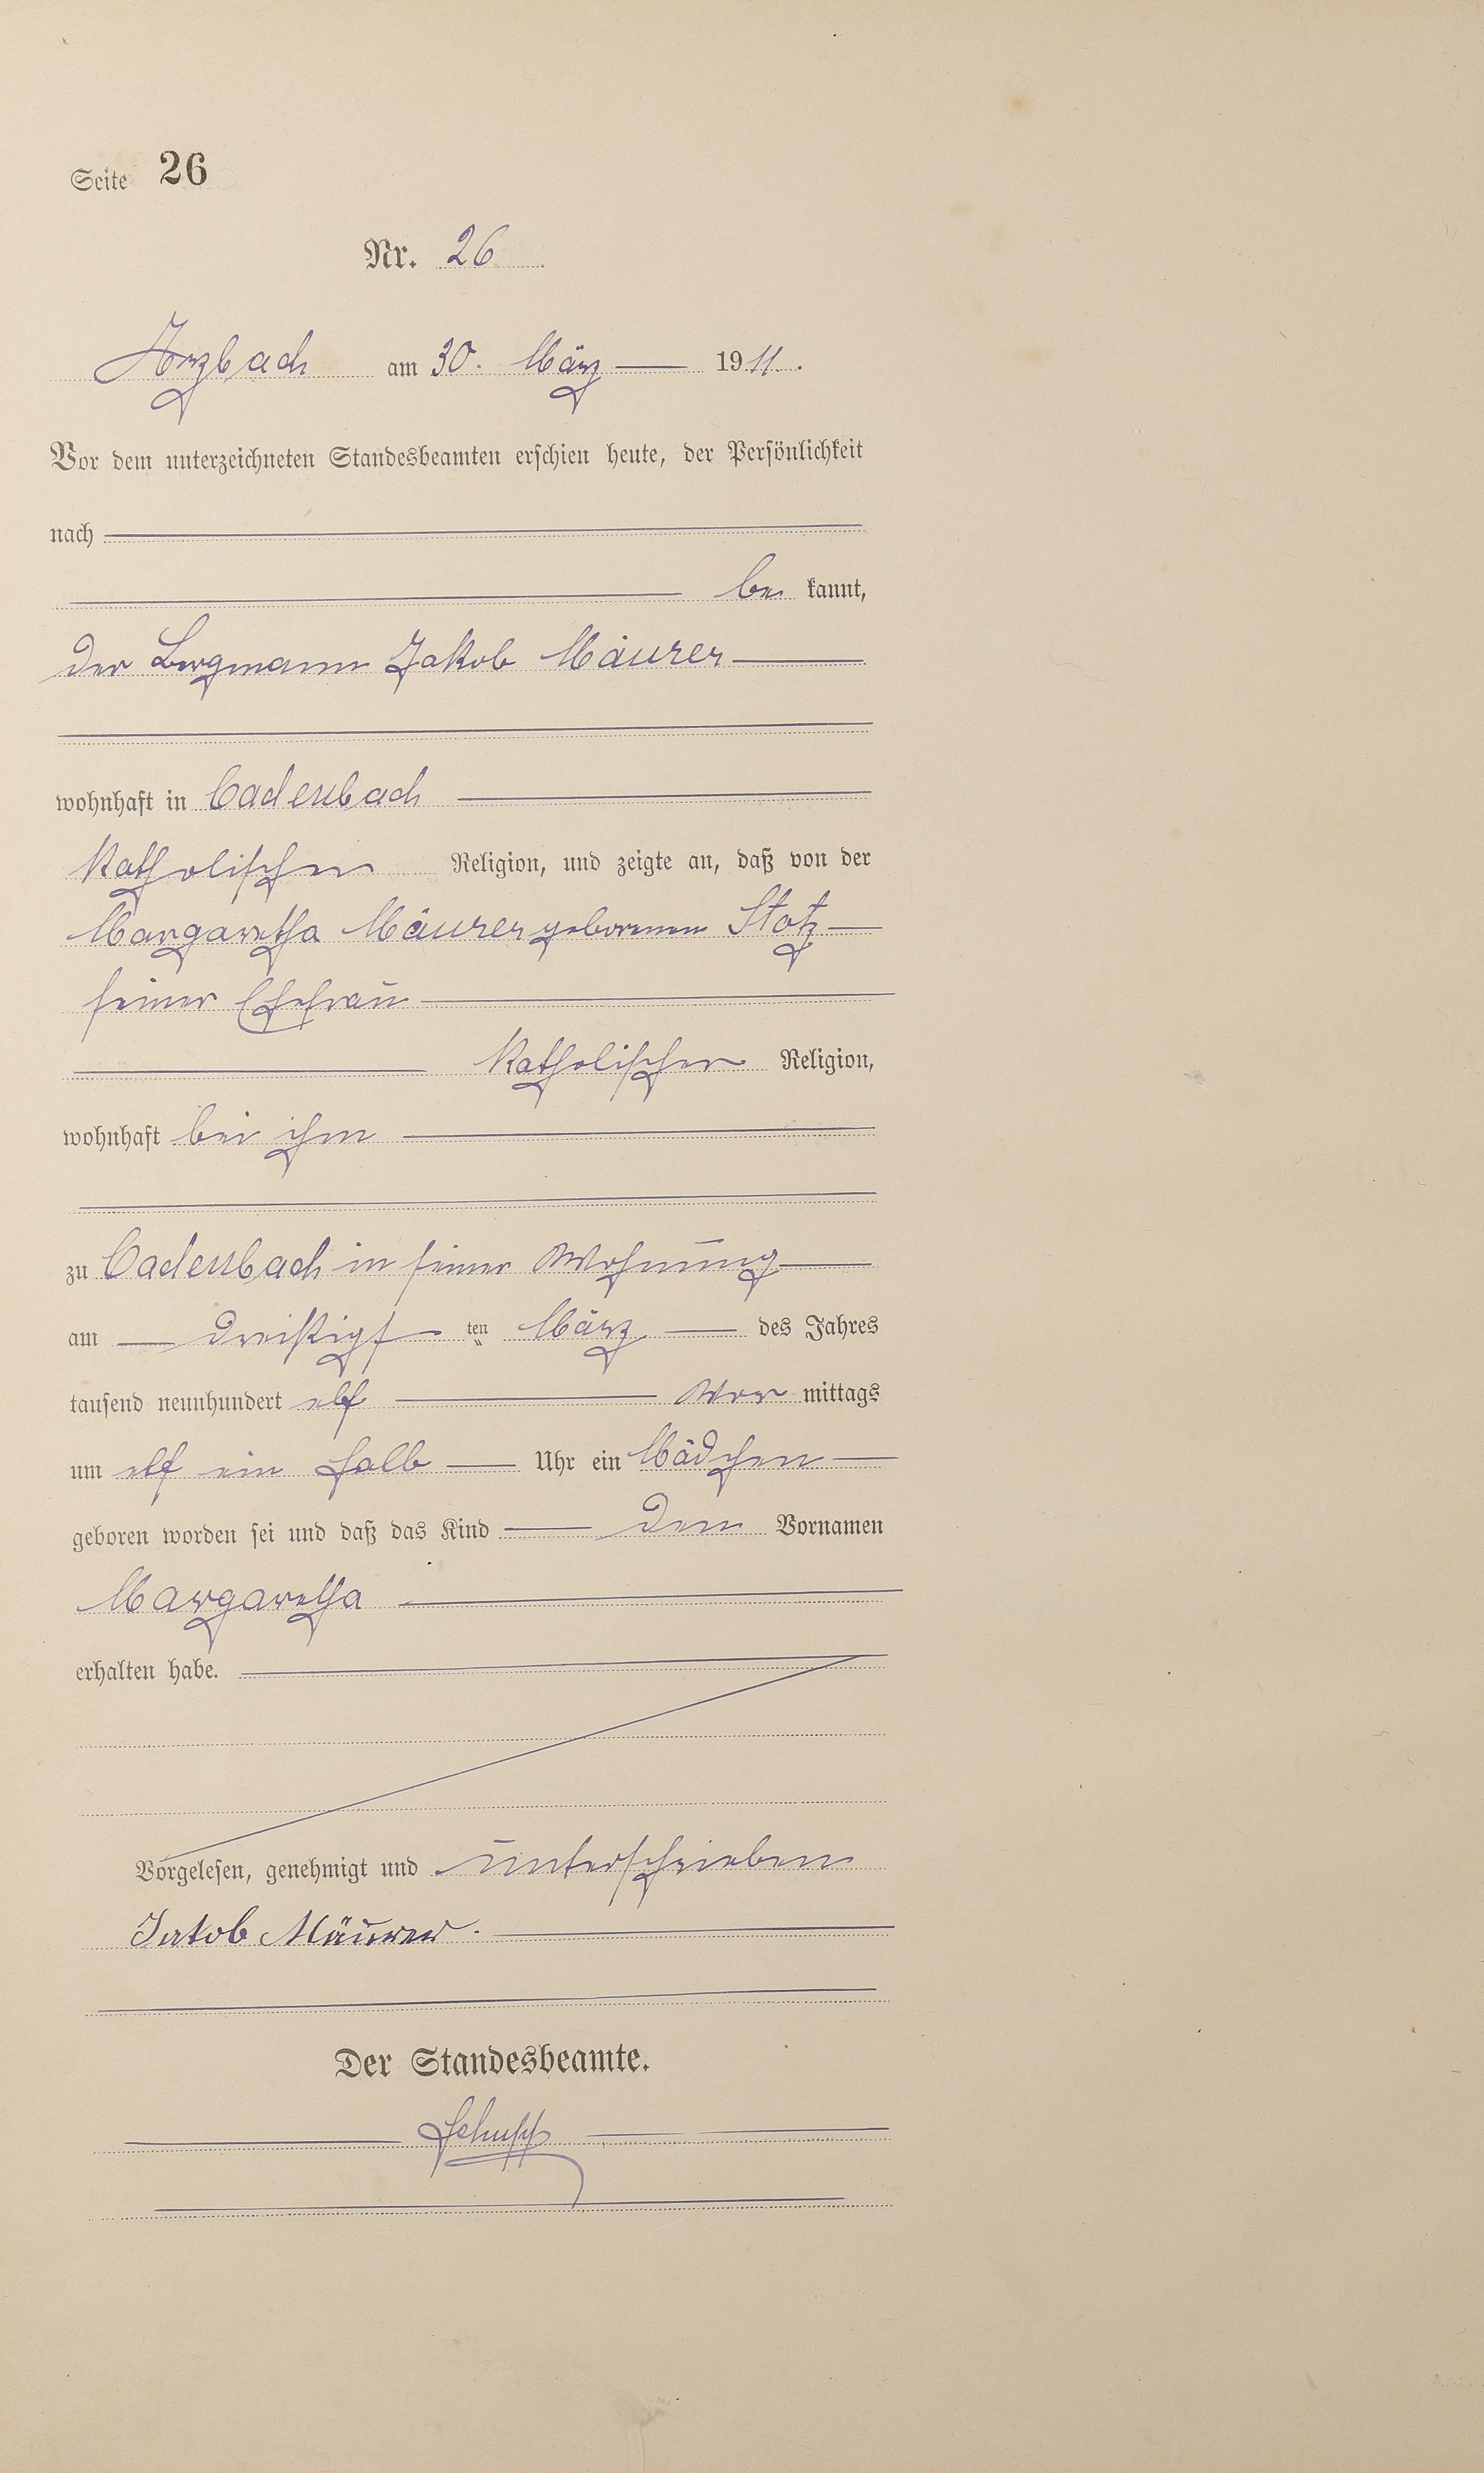 Seite 26
Nr. 26
Arzbach am 30. März 1911.
Vor dem unterzeichneten Standesbeamten erschien heute, der Persönlichkeit
nach
be kannt,
der Bergmann Jakob Mäurer
wohnhaft in Cadenbach
katholischen Religion, und zeigte an, daß von der
Margaretha Mäurer geborenen Stotz
seiner Ehefrau
katholischer Religion,
wohnhaft bei ihm
zu Cadenbach in seiner Wohnung
am dreißigsten März des Jahres
tausend neunhundert elf Vor mittags
um elf ein halb Uhr ein Mädchen
geboren worden sei und daß das Kind den Vornamen
Margaretha
erhalten habe.
Vorgelesen, genehmigt und unterschrieben
Jakob Mäurer.
Der Standesbeamte.
Schupp